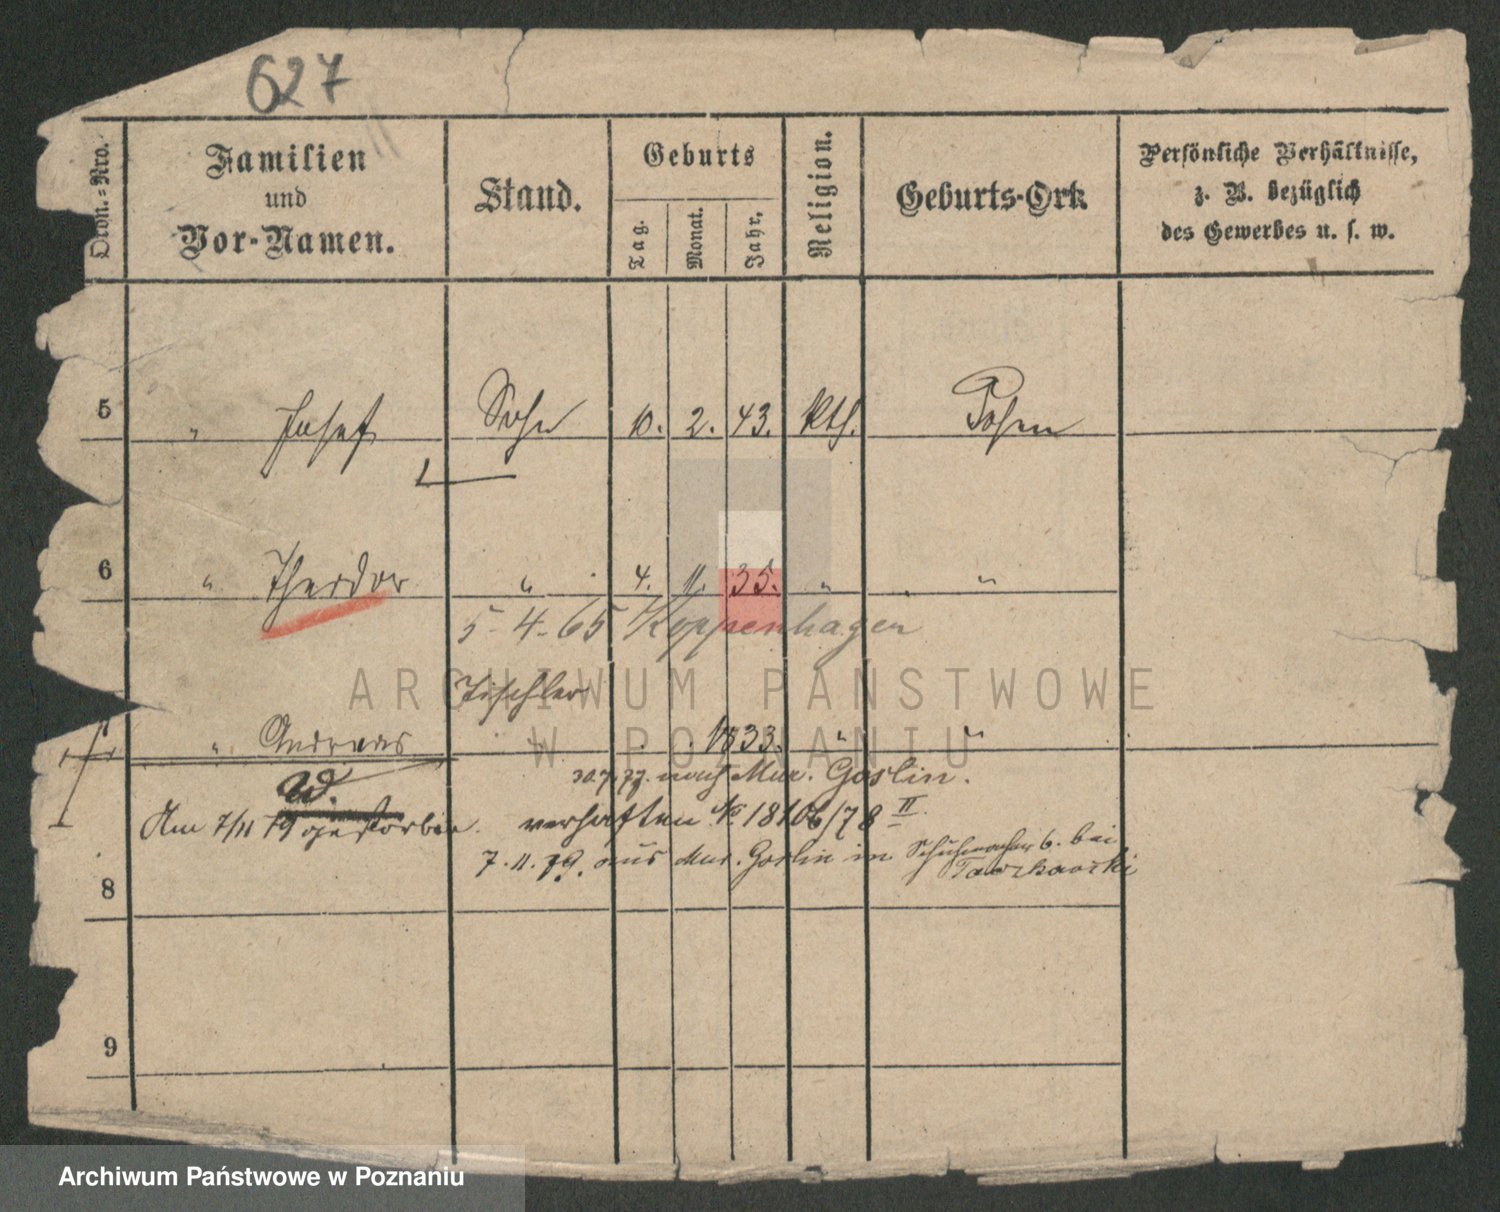 627
Ordn.-Nro.
Familien
und
Vor-Namen.
Stand.
Geburts
Tag.
Monat.
Jahr.
Religion.
Geburts-Ort.
Persönliche Verhältnisse,
z. B. bezüglich
des Gewerbes u. s. w.
5 " Josef Sohn 10. 2. 43. kth. Posen
6 " Theodor " 4. 11. 35. " "
5-4-65 Koppenhagen
Tischler
" Andreas 1833. " "
nach Mur. Goslin.
Am 7/11 79 gestorben. № 18106/78 II.
7.11.79. aus Mur. Goslin in Schuhmacher bei
8
9
ARCHIWUM PAŃSTWOWE
W POZNANIU
Archiwum Państwowe w Poznaniu